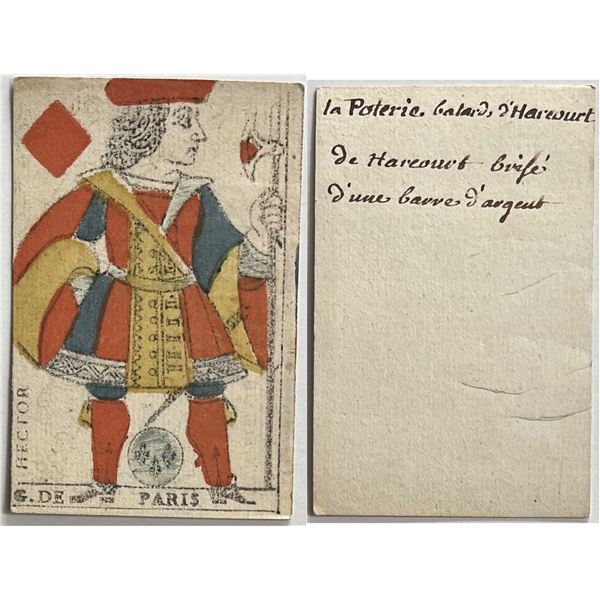 HECTOR
G. DE PARIS
la Poterie, batard, d'Harcourt
de Harcourt brisé
d'une barre d'argent